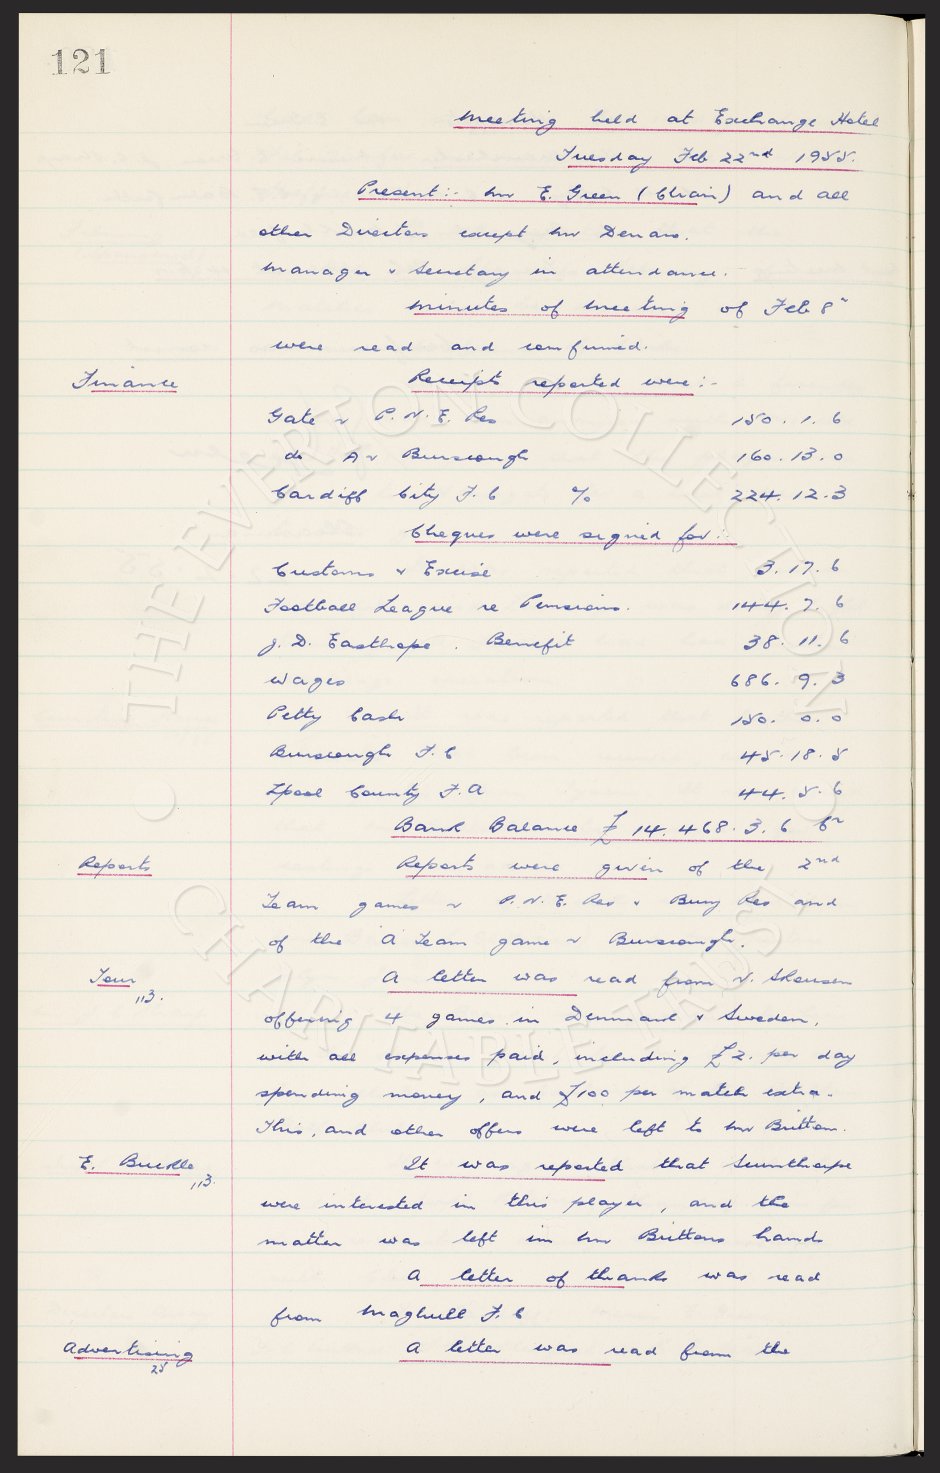 121
Meeting held at Exchange Hotel
Tuesday Feb 22nd 1955.
Present :- Mr E. Green (Chair) and all
other Directors except Mr Denaro.
Manager & Secretary in attendance.
Minutes of Meeting of Feb 8"
were read and confirmed.
Finance
Receipts reported were :-
Gate v P.N.E. Res 150. 1. 6
do A v Burscough 160. 13. 0
Cardiff City F.C % 224. 12. 3
Cheques were signed for :-
Customs & Excise 3. 17. 6
Football League re Pensions. 144. 7. 6
J. D. Easthope. Benefit 38. 11. 6
Wages 686. 9. 3
Petty Cash 150. 0. 0
Burscough F.C 45. 18. 5
Lpool County F.A 44. 5. 6
Bank Balance £14.468. 3. 6 Cr
Reports
Reports were given of the 2nd
Team games v P.N.E. Res & Bury Res and
of the 'A' Team game v Burscough.
Tour
113.
A letter was read from N.
offering 4 games in Denmark & Sweden,
with all expenses paid, including £2. per day
spending money, and £100 per match extra.
This, and other offers were left to Mr Britton.
E. Buckle
113.
It was reported that Scunthorpe
were interested in this player, and the
matter was left in Mr Brittons hands
A letter of thanks was read
from Maghull F.C
Advertising
25
A letter was read from the
© THE EVERTON COLLECTION CHARITABLE TRUST